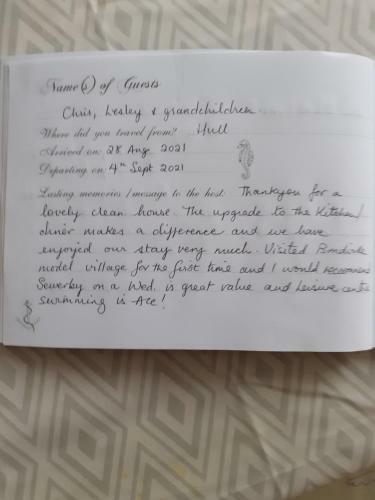 Name(s) of Guests
Chris, Lesley & grandchildren
Where did you travel from? Hull
Arrived on: 28 Aug 2021
Departing on: 4th Sept 2021
Lasting memories / message to the host: Thankyou for a
lovely clean house. The upgrade to the Kitchen/
diner makes a difference and we have
enjoyed our stay very much. Visited Bondville
model village for the first time and I would recommend
Sewerby on a Wed. is great value and Leisure centre
swimming is Ace!